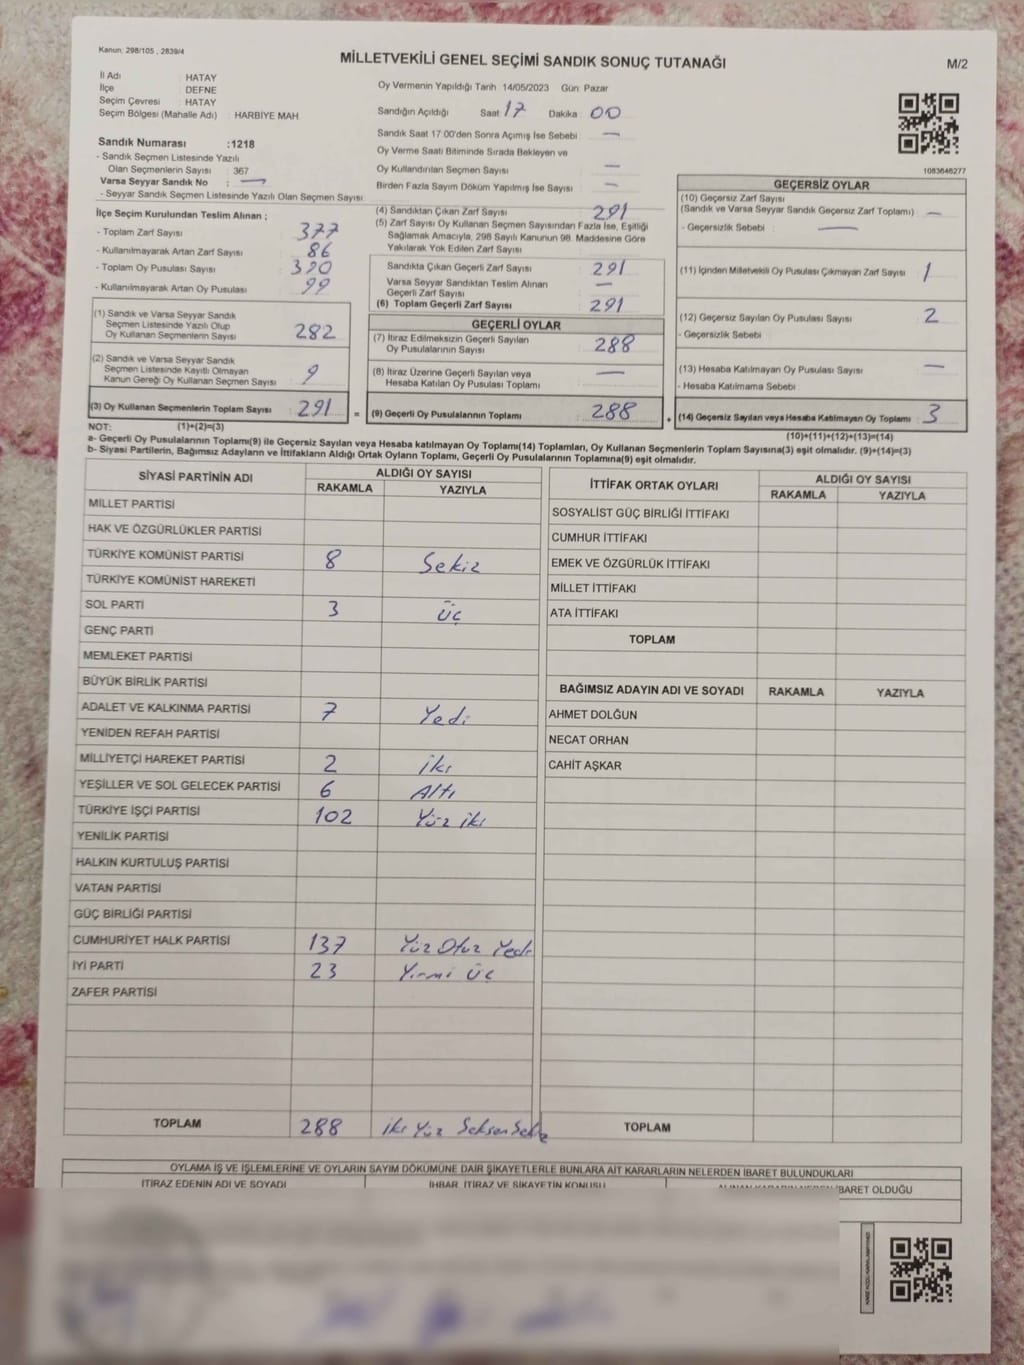 Kanun: 298/105 , 2839/4
MİLLETVEKİLİ GENEL SEÇİMİ SANDIK SONUÇ TUTANAĞI
M/2
İl Adı : HATAY
İlçe : DEFNE
Seçim Çevresi : HATAY
Seçim Bölgesi (Mahalle Adı) : HARBİYE MAH.
Sandık Numarası :1218
- Sandık Seçmen Listesinde Yazılı
Olan Seçmenlerin Sayısı : 367
Varsa Seyyar Sandık No : —
- Seyyar Sandık Seçmen Listesinde Yazılı Olan Seçmen Sayısı
İlçe Seçim Kurulundan Teslim Alınan ;
- Toplam Zarf Sayısı : 377
- Kullanılmayarak Artan Zarf Sayısı : 86
- Toplam Oy Pusulası Sayısı : 390
- Kullanılmayarak Artan Oy Pusulası : 99
(1) Sandık ve Varsa Seyyar Sandık
Seçmen Listesinde Yazılı Olup
Oy Kullanan Seçmenlerin Sayısı : 282
(2) Sandık ve Varsa Seyyar Sandık
Seçmen Listesinde Kayıtlı Olmayan
Kanun Gereği Oy Kullanan Seçmen Sayısı : 9
(3) Oy Kullanan Seçmenlerin Toplam Sayısı : 291 =
Oy Vermenin Yapıldığı Tarih : 14/05/2023 Gün: Pazar
Sandığın Açıldığı Saat 17 Dakika 00
Sandık Saat 17:00'den Sonra Açılmış İse Sebebi : —
Oy Verme Saati Bitiminde Sırada Bekleyen ve
Oy Kullandırılan Seçmen Sayısı : —
Birden Fazla Sayım Döküm Yapılmış İse Sayısı : —
(4) Sandıktan Çıkan Zarf Sayısı : 291
(5) Zarf Sayısı Oy Kullanan Seçmen Sayısından Fazla İse, Eşitliği
Sağlamak Amacıyla, 298 Sayılı Kanunun 98. Maddesine Göre
Yakılarak Yok Edilen Zarf Sayısı :
Sandıkta Çıkan Geçerli Zarf Sayısı : 291
Varsa Seyyar Sandıktan Teslim Alınan
Geçerli Zarf Sayısı : —
(6) Toplam Geçerli Zarf Sayısı : 291
GEÇERLİ OYLAR
(7) İtiraz Edilmeksizin Geçerli Sayılan
Oy Pusulalarının Sayısı : 288
(8) İtiraz Üzerine Geçerli Sayılan veya
Hesaba Katılan Oy Pusulası Toplamı : —
(9) Geçerli Oy Pusulalarının Toplamı : 288 +
1083646277
GEÇERSİZ OYLAR
(10) Geçersiz Zarf Sayısı
(Sandık ve Varsa Seyyar Sandık Geçersiz Zarf Toplamı) : —
- Geçersizlik Sebebi : —
(11) İçinden Milletvekili Oy Pusulası Çıkmayan Zarf Sayısı : 1
(12) Geçersiz Sayılan Oy Pusulası Sayısı : 2
- Geçersizlik Sebebi :
(13) Hesaba Katılmayan Oy Pusulası Sayısı : —
- Hesaba Katılmama Sebebi :
(14) Geçersiz Sayılan veya Hesaba Katılmayan Oy Toplamı : 3
NOT: (1)+(2)=(3)
(10)+(11)+(12)+(13)=(14)
a- Geçerli Oy Pusulalarının Toplamı(9) ile Geçersiz Sayılan veya Hesaba katılmayan Oy Toplamı(14) Toplamları, Oy Kullanan Seçmenlerin Toplam Sayısına(3) eşit olmalıdır. (9)+(14)=(3)
b- Siyasi Partilerin, Bağımsız Adayların ve İttifakların Aldığı Ortak Oyların Toplamı, Geçerli Oy Pusulalarının Toplamına(9) eşit olmalıdır.
SİYASİ PARTİNİN ADI ALDIĞI OY SAYISI
RAKAMLA YAZIYLA
MİLLET PARTİSİ
HAK VE ÖZGÜRLÜKLER PARTİSİ
TÜRKİYE KOMÜNİST PARTİSİ 8 Sekiz
TÜRKİYE KOMÜNİST HAREKETİ
SOL PARTİ 3 üç
GENÇ PARTİ
MEMLEKET PARTİSİ
BÜYÜK BİRLİK PARTİSİ
ADALET VE KALKINMA PARTİSİ 7 Yedi
YENİDEN REFAH PARTİSİ
MİLLİYETÇİ HAREKET PARTİSİ 2 iki
YEŞİLLER VE SOL GELECEK PARTİSİ 6 Altı
TÜRKİYE İŞÇİ PARTİSİ 102 Yüz iki
YENİLİK PARTİSİ
HALKIN KURTULUŞ PARTİSİ
VATAN PARTİSİ
GÜÇ BİRLİĞİ PARTİSİ
CUMHURİYET HALK PARTİSİ 137 Yüz Otuz Yedi
İYİ PARTİ 23 Yirmi üç
ZAFER PARTİSİ
TOPLAM 288 iki Yüz Seksen Sekiz
İTTİFAK ORTAK OYLARI ALDIĞI OY SAYISI
RAKAMLA YAZIYLA
SOSYALİST GÜÇ BİRLİĞİ İTTİFAKI
CUMHUR İTTİFAKI
EMEK VE ÖZGÜRLÜK İTTİFAKI
MİLLET İTTİFAKI
ATA İTTİFAKI
TOPLAM
BAĞIMSIZ ADAYIN ADI VE SOYADI RAKAMLA YAZIYLA
AHMET DOLĞUN
NECAT ORHAN
CAHİT AŞKAR
TOPLAM
OYLAMA İŞ VE İŞLEMLERİNE VE OYLARIN SAYIM DÖKÜMÜNE DAİR ŞİKAYETLERLE BUNLARA AİT KARARLARIN NELERDEN İBARET BULUNDUKLARI
İTİRAZ EDENİN ADI VE SOYADI İHBAR, İTİRAZ VE ŞİKAYETİN KONUSU ALINAN KARARIN NEDEN İBARET OLDUĞU